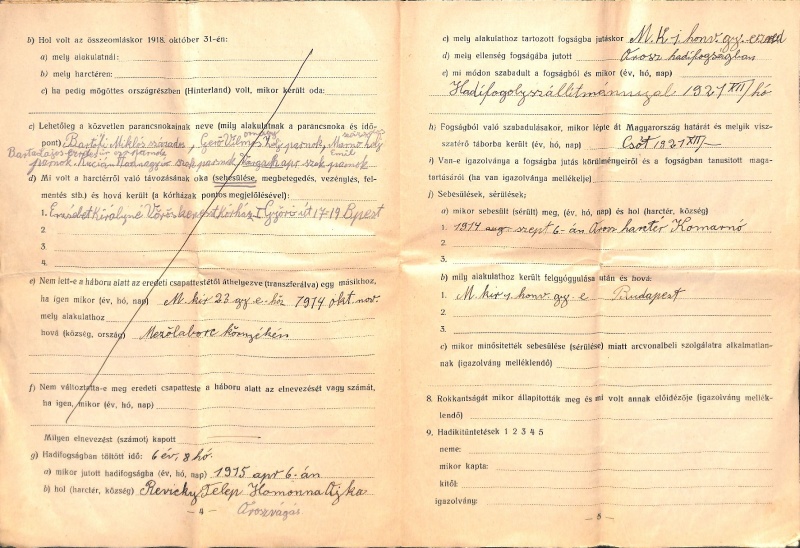 b) Hol volt az összeomláskor 1918. október 31-én:
a) mely alakulatnál:
b) mely harctéren:
c) ha pedig mögöttes országrészben (Hinterland) volt, mikor került oda:
c) Lehetőleg a közvetlen parancsnokainak neve (mely alakulatnak a parancsnoka és idő-
pont) Bartóki Miklós százados, Gerő Vilmos
d) Mi volt a harctérről való távozásának oka (sebesülése, megbetegedés, vezénylés, fel-
mentés stb.) és hová került (a Kórházak pontos megjelölésével):
1. Erzsébet Királyné Vöröskereszt Kórház Győri út 17-19 Bpest
2
3
4.
e) Nem lett-e a háboru alatt az eredeti csapattestétől áthelyezve (transzferálva) egy másikhoz,
ha igen mikor (év, hó, nap) M. kir 23 gy. e-höz 1914 okt. nov.
mely alakulathoz
hová (község, ország) Mezőlaborc környékén
f) Nem változtatta-e meg eredeti csapatteste a háboru alatt az elnevezését vagy számát,
ha igen, mikor (év, hó, nap)
Milyen elnevezést (számot) kapott
g) Hadifogságban töltött idő: 6 év, 8 hó.
a) mikor jutott hadifogságba (év, hó, nap) 1915 apr 6-án
b) hol (harctér, község) Revicky Telep Homonna
Oroszvágás
— 4 —
c) mely alakulathoz tartozott fogságba jutáskor M. K. 1 honv. gy. ezred
d) mely ellenség fogságába jutott Orosz hadifogságban
e) mi módon szabadult a fogságból és mikor (év, hó, nap)
Hadifogolyszállítmánnyal 1921 XII hó
h) Fogságból való szabadulásakor, mikor lépte át Magyarország határát és melyik visz-
szatérő táborba került (év, hó, nap) Csót 1921 XII
i) Van-e igazolványa a fogságba jutás körülményeiről és a fogságban tanusitott maga-
tartásáról (ha van igazolványa mellékelje)
j) Sebesülések, sérülések;
a) mikor sebesült (sérült) meg, (év, hó, nap) és hol (harctér, község)
1. 1914 aug. szept 6-án Orosz harctér Komarnó
2.
3.
b) mely alakulathoz került felgyógyulása után és hová:
1. M. kir 1. honv. gy. e Budapest
2.
3.
c) mikor minősítették sebesülése (sérülése) miatt arcvonalbeli szolgálatra alkalmatlan-
nak (igazolvány melléklendő)
8. Rokkantságát mikor állapították meg és mi volt annak előidézője (igazolvány mellék-
lendő)
9. Hadikitüntetések 1 2 3 4 5
neme:
mikor kapta:
kitől:
igazolvány:
— 5 —